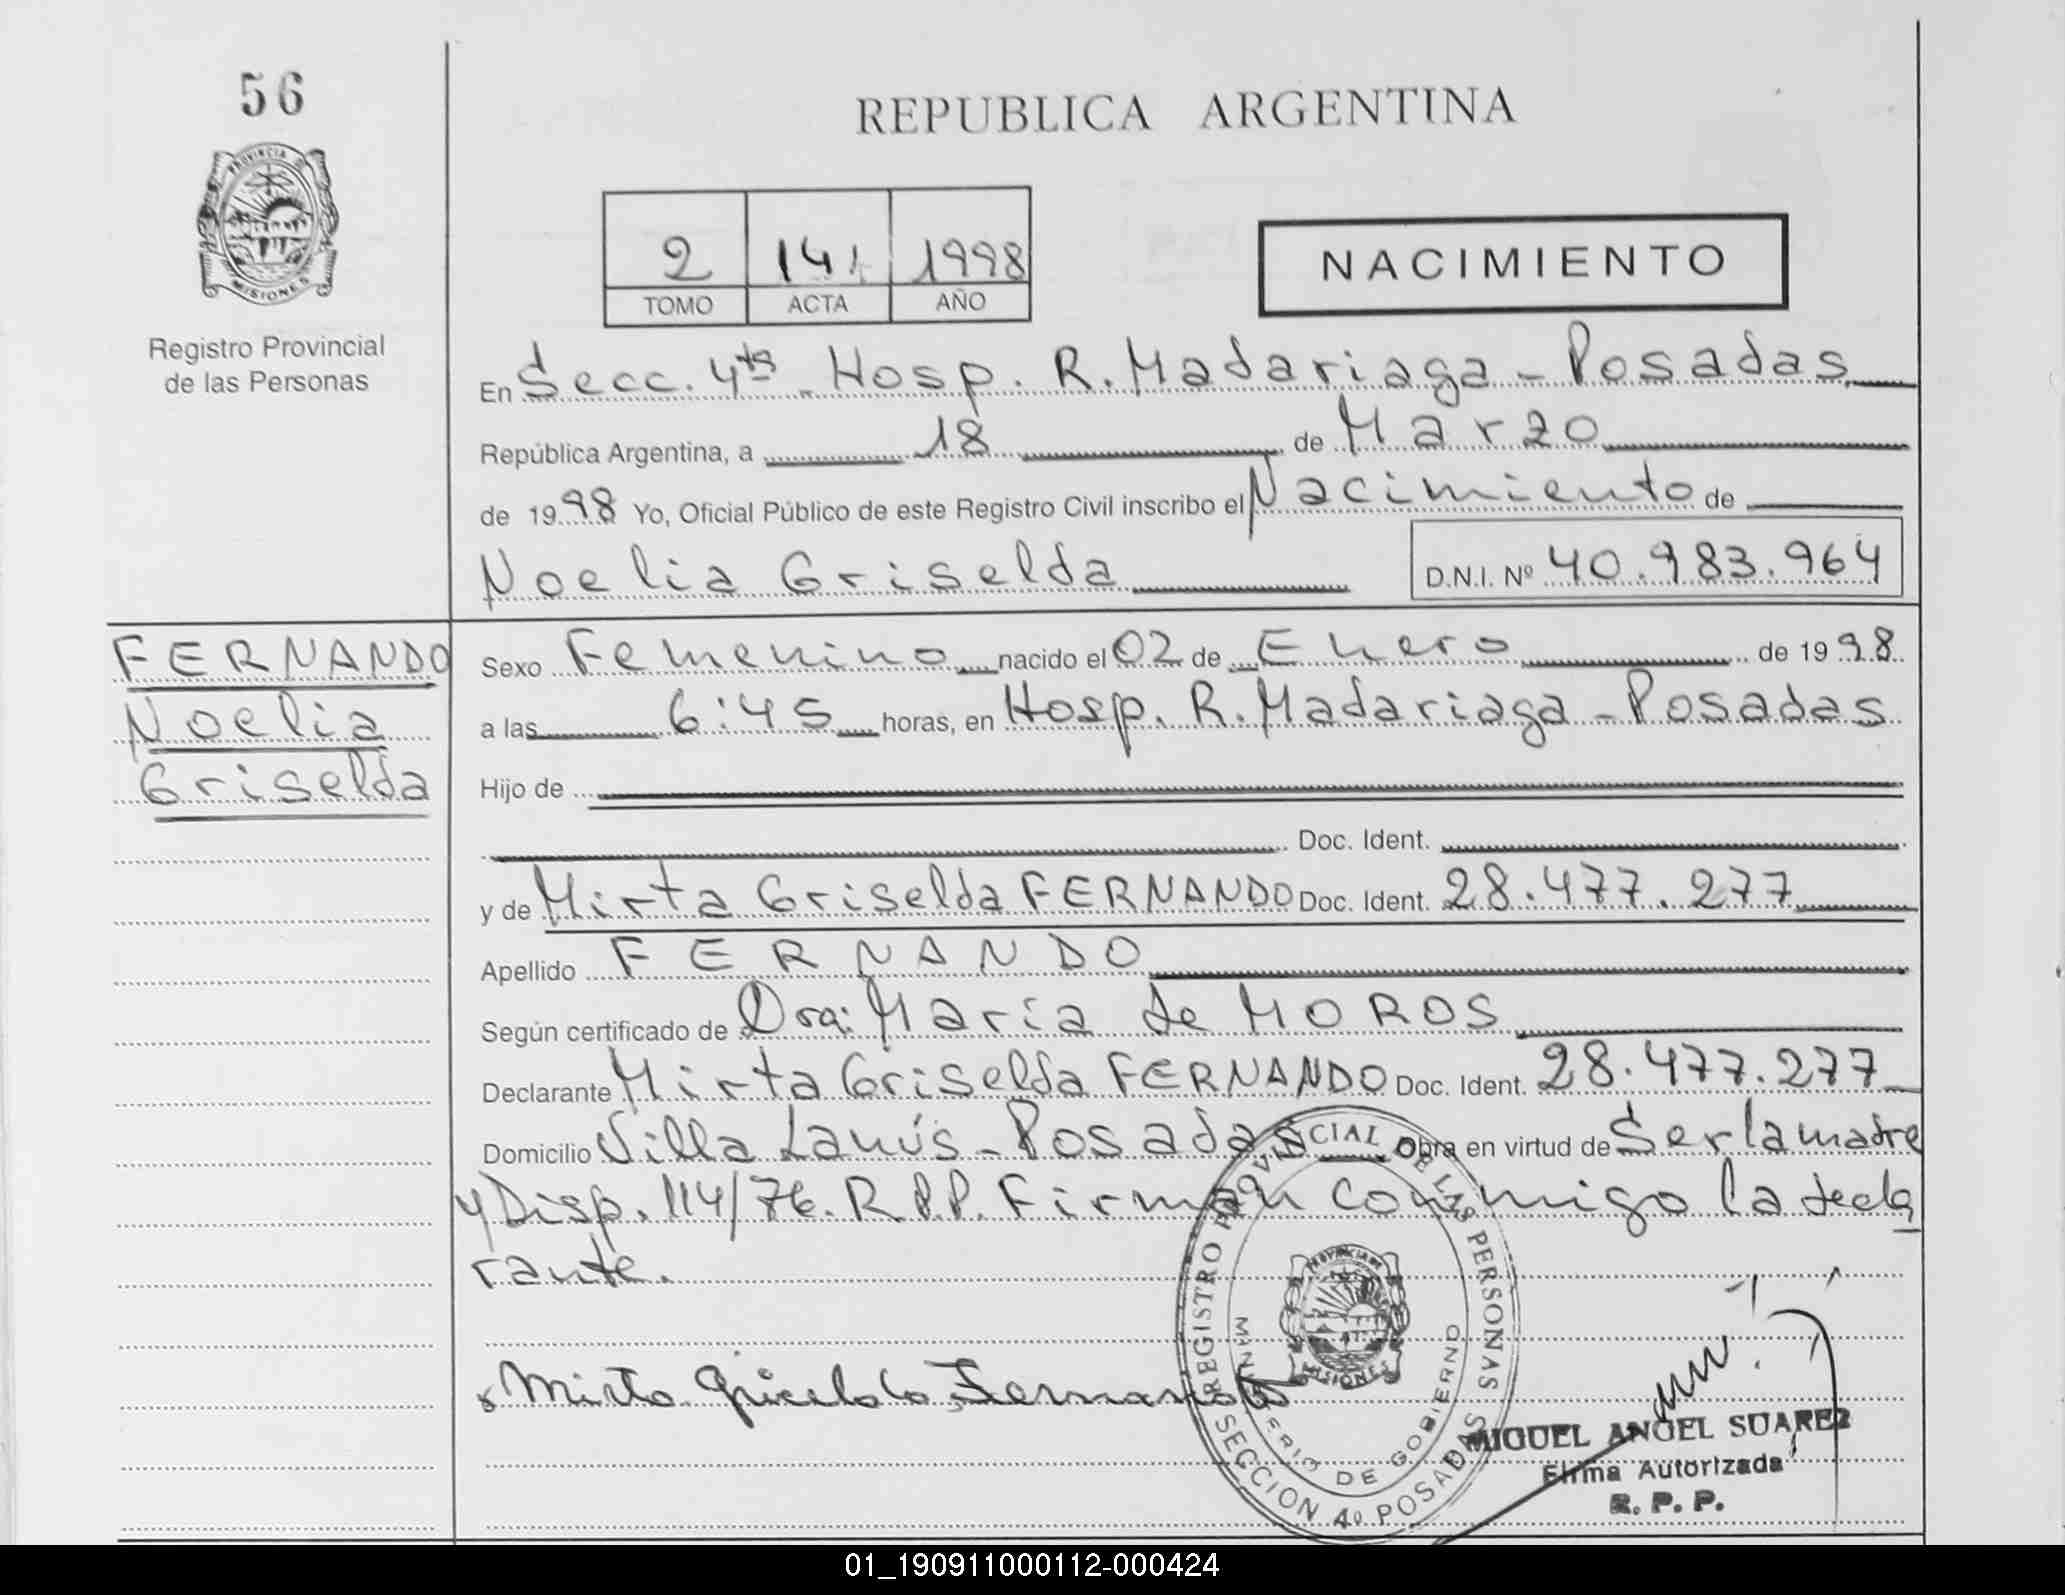 56
PROVINCIA D
MISIONES
Registro Provincial
de las Personas
REPUBLICA ARGENTINA
2 141 1998
TOMO ACTA AÑO
NACIMIENTO
En Secc. 4ta - Hosp. R. Madariaga - Posadas
República Argentina, a 18 de Marzo
de 1998 Yo, Oficial Público de este Registro Civil inscribo el Nacimiento de
Noelia Griselda D.N.I. Nº 40.983.964
FERNANDO
Noelia
Griselda
Sexo Femenino nacido el 02 de Enero de 1998
a las 6:45 horas, en Hosp. R. Madariaga - Posadas
Hijo de
Doc. Ident.
y de Mirta Griselda FERNANDO Doc. Ident. 28.477.277
Apellido FERNANDO
Según certificado de Dra: María de MOROS
Declarante Mirta Griselda FERNANDO Doc. Ident. 28.477.277
Domicilio Villa Lanús - Posadas Obra en virtud de Ser la madre
y Disp. 114/76. R.P.P. Firman conmigo la decla
rante.
x Mirta Gricelda Fernando
REGISTRO PROVINCIAL DE LAS PERSONAS
MINISTERIO DE GOBIERNO
SECCION 4º POSADAS
MIGUEL ANGEL SUAREZ
Firma Autorizada
R. P. P.
01_190911000112-000424